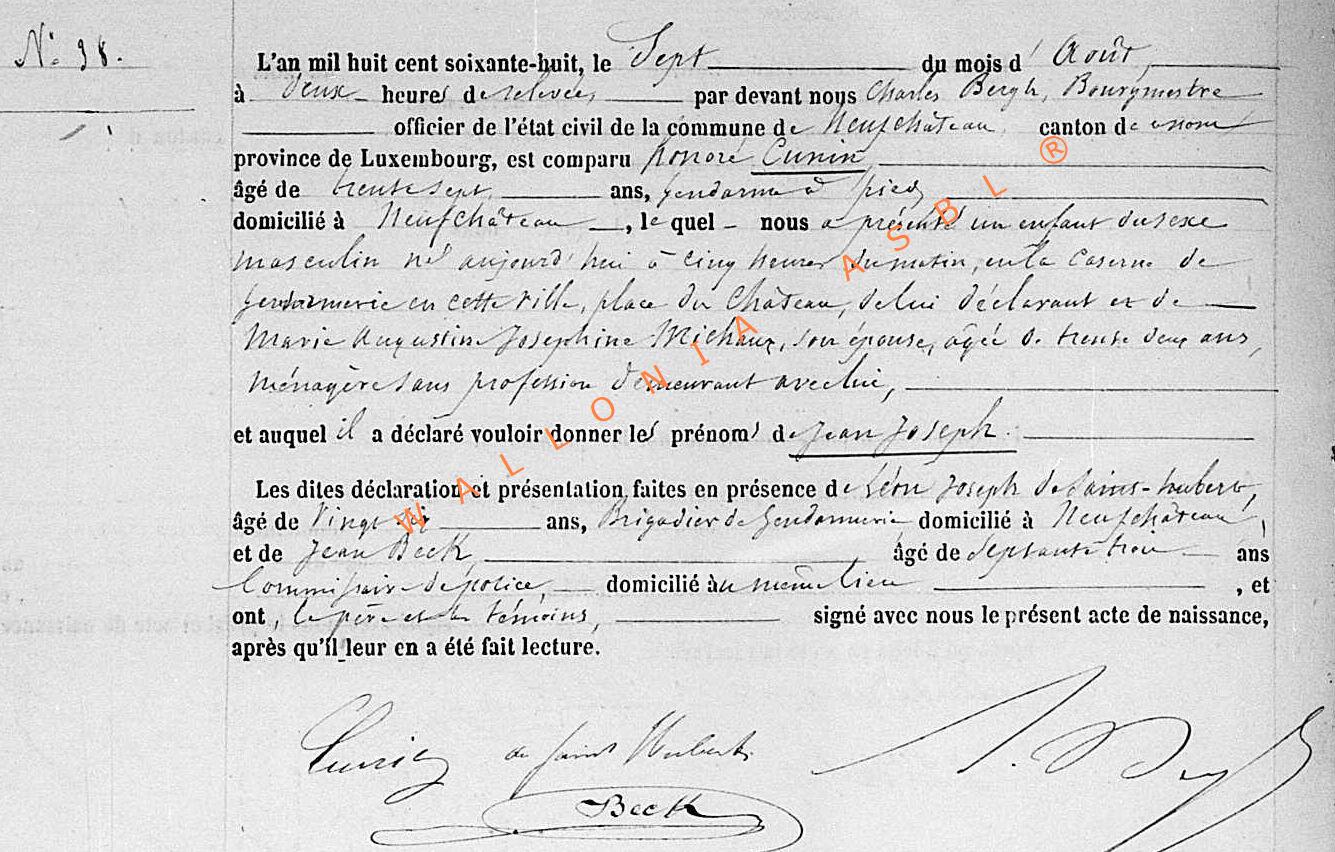 N° 98.
L'an mil huit cent soixante-huit, le Sept du mois d'Août,
à deux heures de relevée, par devant nous Charles Bergh, Bourgmestre
officier de l'état civil de la commune de Neufchâteau, canton de ce nom
province de Luxembourg, est comparu honoré Cunin,
âgé de trente sept ans, gendarme à pied
domicilié à Neufchâteau, le quel nous a présenté un enfant du sexe
masculin né aujourd'hui à cinq heures du matin, en la Caserne de
Gendarmerie en cette ville, place du Château, de lui déclarant et de
Marie Augustine Josephine Michaux, son épouse, agée de trente deux ans,
ménagère sans profession demeurant avec lui,
et auquel il a déclaré vouloir donner les prénoms de Jean Joseph.
Les dites déclaration et présentation faites en présence de Léon Joseph de Saint-hubert,
âgé de Vingt six ans, Brigadier de Gendarmerie domicilié à Neufchâteau,
et de Jean Beck âgé de septante trois ans
Commissaire de police, domicilié au même lieu, et
ont, le père et les témoins, signé avec nous le présent acte de naissance,
après qu'il leur en a été fait lecture.
Cunin de Saint Hubert
Beck
WALLONIA ASBL ®